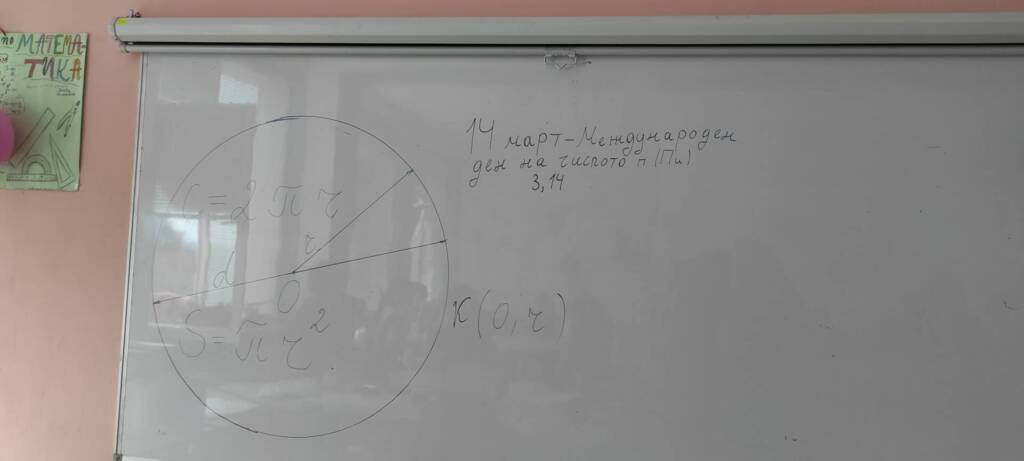 МАТЕМА-
ТИКА
14 март – Международен
ден на числото п (Пи)
3,14
C = 2 π r
r
d
O
S = π r²
K (O, r)